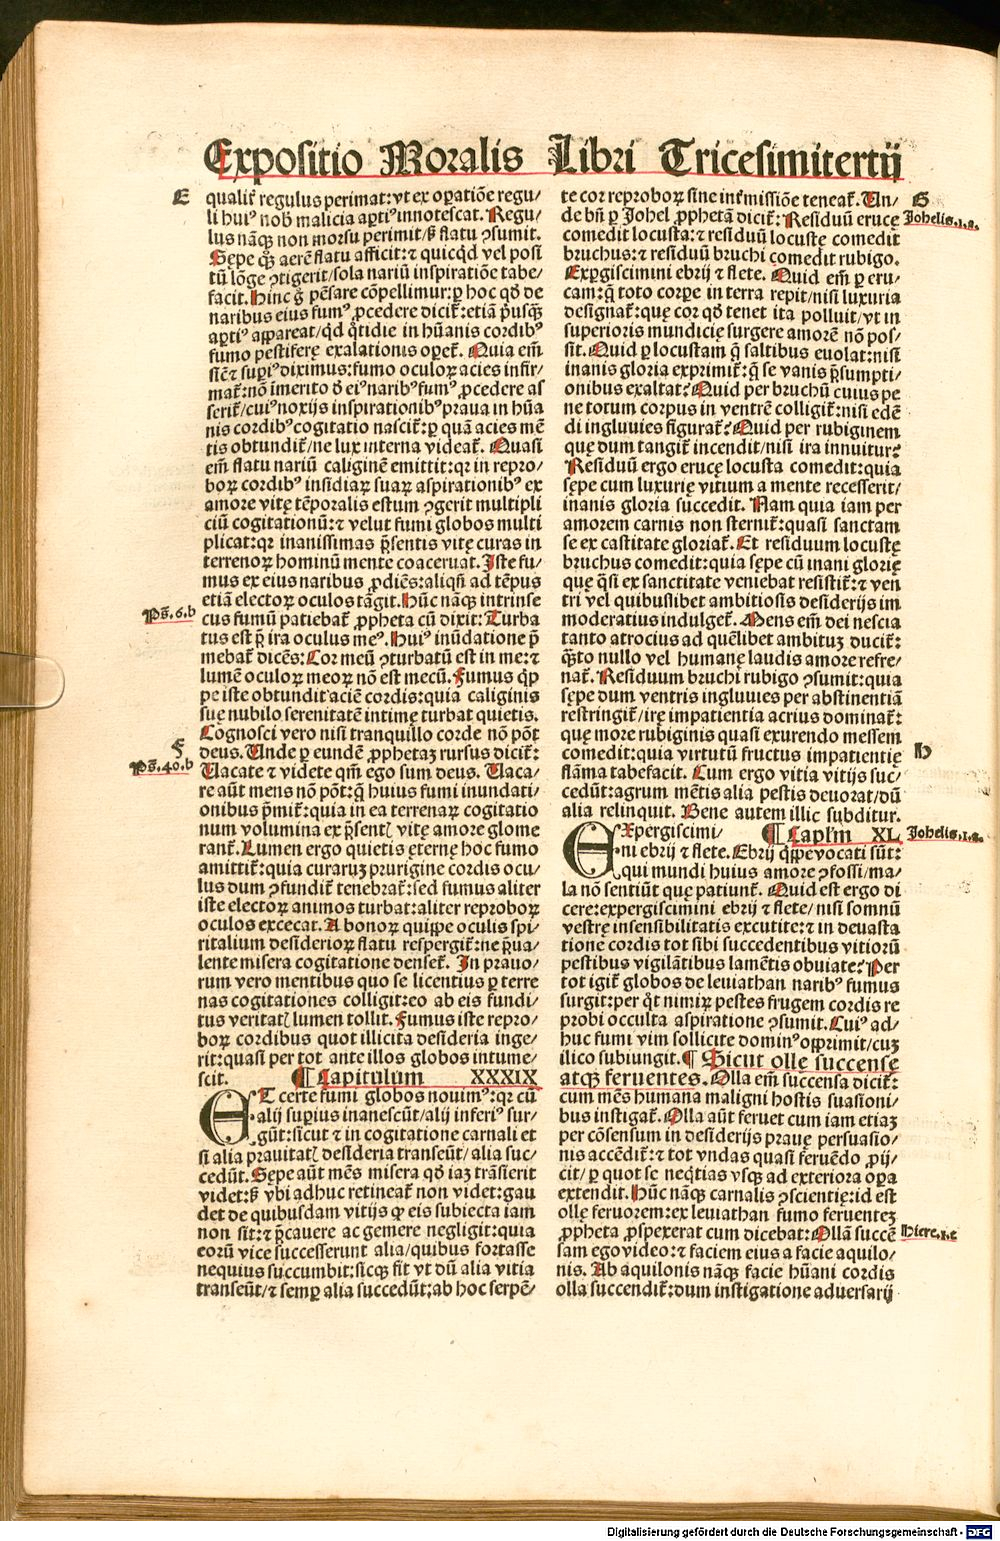 Expositio Moralis Libri Tricesimitertij
E
qualit᷑ regulus perimat: vt ex oꝑatiōe regu/
li huiꝰ nob̃ malicia aꝑtiꝰ innotescat. Regu/
lus nāqꝫ non morsu perimit/ ẞ flatu ꝯsumit.
Sepe qͥꝫ aerē flatu afficit: ⁊ quicqͥd vel posi
tū lōge ꝯtigerit/ sola nariū inspiratiōe tabe/
facit. Hinc g̊ pēsare cōpellimur: ꝑ hoc qd̓ de
naribus eius fumꝰ ꝓcedere dicit᷑: etiā pͥusqͣꝫ
aꝑtiꝰ appareat/ qͥd qͦtidie in hūanis cordibꝰ
fumo pestiferę exalationis oꝑet᷑. Quia em̄
sic̄ ⁊ supiꝰ diximus: fumo oculoꝝ acies infir/
mat᷑: nō īmerito d̓ eiꝰ naribꝰ fumꝰ ꝓcedere as
serit᷑/ cuiꝰ noxijs inspirationibꝰ praua in hūa
nis cordibꝰ cogitatio nascit᷑: ꝑ quā acies mē
tis obtundit᷑/ ne lux interna videat᷑. Quasi
em̄ flatu nariū caliginē emittit: qꝛ in repro/
boꝝ cordibꝰ insidiaꝝ suaꝝ aspirationibꝰ ex
amore vitę tēporalis estum ꝯgerit multipli
ciū cogitationū: ⁊ velut fumi globos multi
plicat: qꝛ inanissimas p̄sentis vitę curas in
terrenoꝝ hominū mente coaceruat. Iste fu/
mus ex eius naribus ꝓdiēs: aliqn̄ ad tēpus
etiā electoꝝ oculos tāgit. Hūc nāqꝫ intrinse
Ps̄. 6. b
cus fumū patiebat᷑ ꝓpheta cū dixit: Turba
tus est p̄ ira oculus meꝰ. Huiꝰ inūdatione p̄
mebat᷑ dicēs: Cor meū ꝯturbatū est in me: ⁊
lumē oculoꝝ meoꝝ nō est mecū. Fumus qͥp
pe iste obtundit aciē cordis: quia caliginis
suę nubilo serenitatē intimę turbat quietis.
Cognosci vero nisi tranquillo corde nō pōt
F
deus. Unde ꝑ eundē ꝓphetaꝫ rursus dicit᷑:
Ps̄. 40. b
Uacate ⁊ videte qm̄ ego sum deus. Uaca/
re aūt mens nō pōt: q̄ huius fumi inundati/
onibus p̄mit᷑: quia in ea terrenaꝝ cogitatio
num volumina ex p̄sentꝭ vitę amore glome
rant᷑. Lumen ergo quietis ęternę hoc fumo
amittit᷑: quia curaruꝫ prurigine cordis ocu/
lus dum ꝯfundit᷑ tenebrat᷑: sed fumus aliter
iste electoꝝ animos turbat: aliter reproboꝝ
oculos excecat. A bonoꝝ quippe oculis spi/
ritalium desiderioꝝ flatu respergit᷑: ne p̄ua/
lente misera cogitatione denset᷑. In prauo/
rum vero mentibus quo se licentius ꝑ terre
nas cogitationes colligit: eo ab eis fundi/
tus veritatꝭ lumen tollit. Fumus iste repro/
boꝝ cordibus quot illicita desideria inge/
rit: quasi per tot ante illos globos intume/
scit. ¶ Capitulum XXXIX
ET certe fumi globos nouimꝰ: qꝛ cū
alij suꝑius inanescūt/ alij inferiꝰ sur/
gūt: sicut ⁊ in cogitatione carnali et
si alia prauitatꝭ desideria transeūt/ alia suc/
cedūt. Sępe aūt mēs misera qd̓ iaꝫ trāsierit
videt: ẞ vbi adhuc retineat᷑ non videt: gau
det de quibusdam vitijs ꝙ eis subiecta iam
non sit: ⁊ p̄cauere ac gemere negligit: quia
eorū vice successerunt alia/ quibus fortasse
nequius succumbit: sicqꝫ fit vt dū alia vitia
transeūt/ ⁊ semꝑ alia succedūt; ab hoc serpē/
te cor reproboꝝ sine int᷑missiōe teneat᷑. Un/
G
de bn̄ ꝑ Johel ꝓphetā dicit᷑: Residuū erucę
Johelis. 1. a.
comedit locusta: ⁊ residuū locustę comedit
bruchus: ⁊ residuū bruchi comedit rubigo.
Exꝑgiscimini ebrij ⁊ flete. Quid em̄ ꝑ eru/
cam: q̄ toto corꝑe in terra repit/ nisi luxuria
designat᷑: quę cor qd̓ tenet ita polluit/ vt in
superioris mundicię surgere amorē nō pos/
sit. Quid ꝑ locustam q̄ saltibus euolat: nisi
inanis gloria exprimit᷑: q̄ se vanis p̄sumpti/
onibus exaltat? Quid per bruchū cuius pe
ne totum corpus in ventrē colligit᷑: nisi edē
di ingluuies figurat᷑? Quid per rubiginem
quę dum tangit incendit/ nisi ira innuitur?
Residuū ergo erucę locusta comedit: quia
sępe cum luxurię vitium a mente recesserit/
inanis gloria succedit. Nam quia iam per
amorem carnis non sternit᷑: quasi sanctam
se ex castitate gloriat᷑. Et residuum locustę
bruchus comedit: quia sępe cū inani glorię
quę qͣsi ex sanctitate veniebat resistit᷑: ⁊ ven
tri vel quibuslibet ambitiosis desiderijs im
moderatius indulget᷑. Mens em̄ dei nescia
tanto atrocius ad quēlibet ambituꝫ ducit᷑:
qͣꝫto nullo vel humanę laudis amore refre/
nat᷑. Residuum bruchi rubigo ꝯsumit: quia
sępe dum ventris ingluuies per abstinentiā
restringit᷑/ irę impatientia acrius dominat᷑:
quę more rubiginis quasi exurendo messem
H
comedit: quia virtutū fructus impatientię
flāma tabefacit. Cum ergo vitia vitijs suc/
cedūt: agrum mētis alia pestis deuorat/ dū
alia relinquit. Bene autem illic subditur.
¶ Caplm̄ XL
Johelis. 1. a.
EXpergiscimi/
ni ebrij ⁊ flete. Ebrij qͥppe vocati sūt:
qui mundi huius amore ꝯfossi/ ma/
la nō sentiūt quę patiunt᷑. Quid est ergo di
cere: expergiscimini ebrij ⁊ flete/ nisi somnū
vestrę insensibilitatis excutite: ⁊ in deuasta
tione cordis tot sibi succedentibus vitiorū
pestibus vigilātibus lamētis obuiate? Per
tot igit᷑ globos de leuiathan naribꝰ fumus
surgit: per qͦt nimiꝝ pestes frugem cordis re
probi occulta aspiratione ꝯsumit. Cuiꝰ ad/
huc fumi vim sollicite dominꝰ opprimit/ cuꝫ
ilico subiungit. ¶ Sicut ollę succensę
atqꝫ feruentes. Olla em̄ succensa dicit᷑:
cum mēs humana maligni hostis suasioni/
bus instigat᷑. Olla aūt feruet cum iam etiaꝫ
per cōsensum in desiderijs prauę persuasio/
nis accēdit᷑: ⁊ tot vndas quasi feruēdo ꝓij/
cit/ ꝑ quot se neqͥtias vsqꝫ ad exteriora oꝑa
extendit. Hūc nāqꝫ carnalis ꝯscientię: id est
ollę feruorem: ex leuiathan fumo feruenteꝫ
ꝓpheta ꝓspexerat cum dicebat: Ollā succē
Hiere. 1. c
sam ego video: ⁊ faciem eius a facie aquilo/
nis. Ab aquilonis nāqꝫ facie hūani cordis
olla succendit᷑: dum instigatione aduersarij
Digitalisierung gefördert durch die Deutsche Forschungsgemeinschaft - DFG